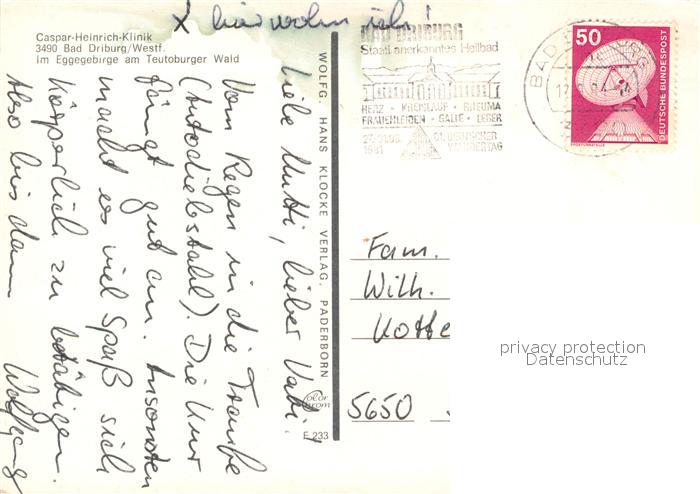 X hier wohn ich!
Caspar-Heinrich-Klinik
3490 Bad Driburg/Westf.
Im Eggegebirge am Teutoburger Wald
Liebe Mutti, lieber Vati!
Vom Regen in die Traufe
(Autodiebstahl). Die Kur
fängt gut an. Ansonsten
macht es viel Spaß sich
körperlich zu betätigen.
Also bis dann
Wolfgang
WOLFG. HANS KLOCKE VERLAG, PADERBORN
Color
chrom
E 233
BAD DRIBURG
Staatl. anerkanntes Heilbad
HERZ · KREISLAUF · RHEUMA
FRAUENLEIDEN · GALLE · LEBER
1981
81. DEUTSCHER
WANDERTAG
50
DEUTSCHE BUNDESPOST
Fam.
Wilh.
Kotte
5650
privacy protection
Datenschutz